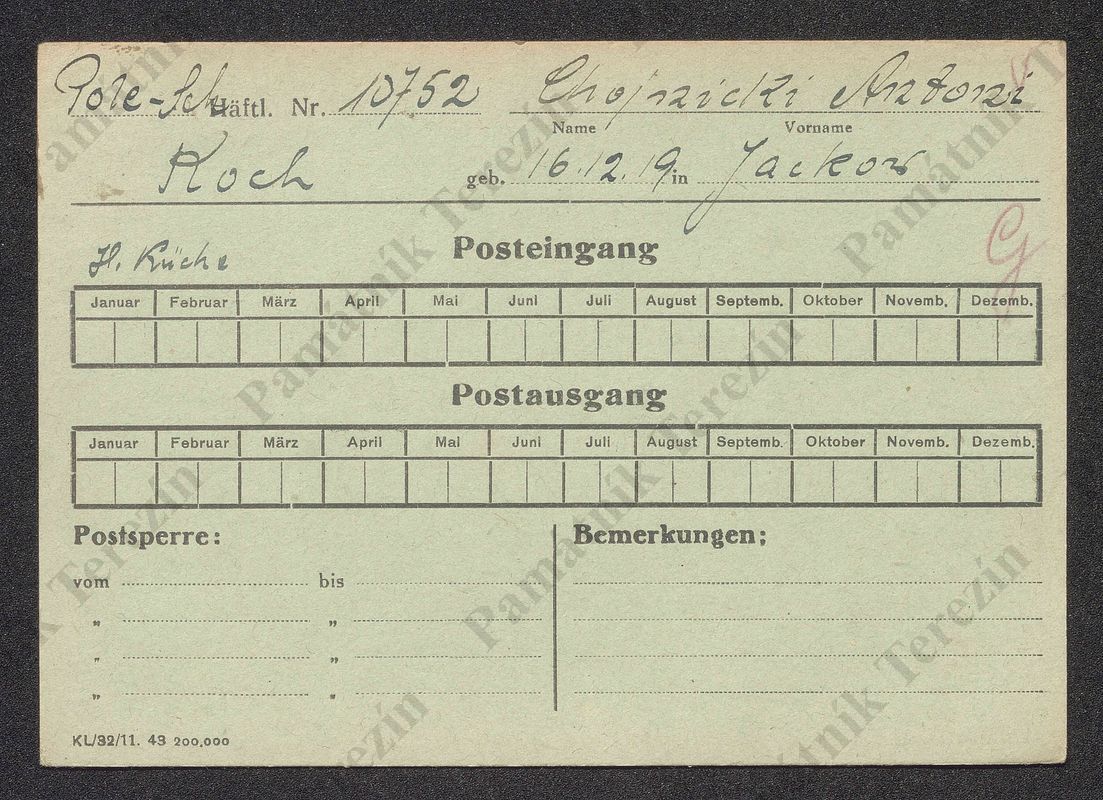 Pole-Sch Häftl. Nr. 10752 Chojnicki Antoni
Name Vorname
Koch geb. 16.12.19 in Jackow
H. Küche
Posteingang
G
Januar Februar März April Mai Juni Juli August Septemb. Oktober Novemb. Dezemb.
Postausgang
Januar Februar März April Mai Juni Juli August Septemb. Oktober Novemb. Dezemb.
Postsperre: Bemerkungen:
vom bis
" "
" "
" "
KL/32/11. 43 200,000
Památník Terezín